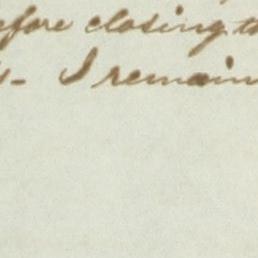 efore closing t
- I remain